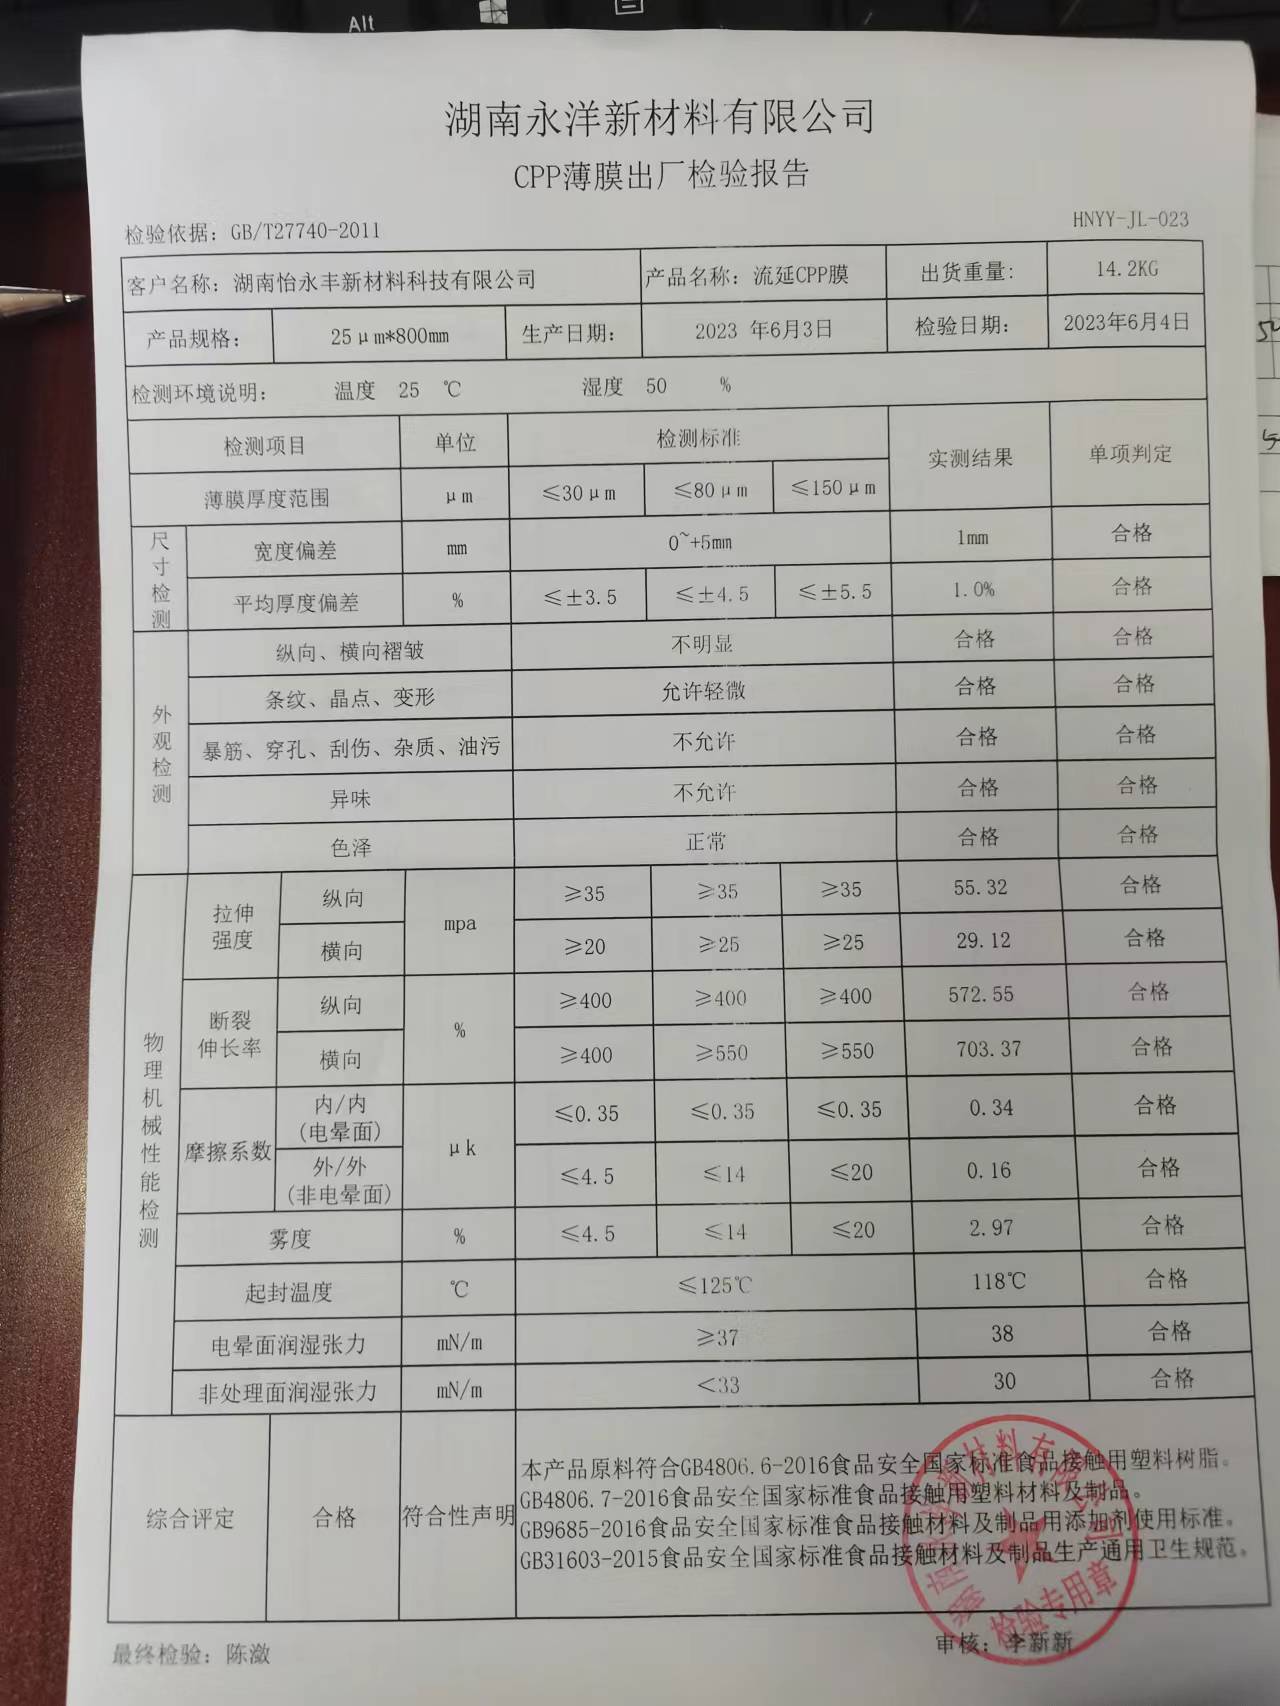 Alt
湖南永洋新材料有限公司
CPP薄膜出厂检验报告
检验依据：GB/T27740-2011
HNYY-JL-023
客户名称：湖南怡永丰新材料科技有限公司 产品名称：流延CPP膜 出货重量： 14.2KG
产品规格： 25μm*800mm 生产日期： 2023 年6月3日 检验日期： 2023年6月4日
检测环境说明： 温度 25 ℃ 湿度 50 %
检测项目 单位 检测标准 实测结果 单项判定
薄膜厚度范围 μm ≤30μm ≤80μm ≤150μm
尺寸检测 宽度偏差 mm 0~+5mm 1mm 合格
平均厚度偏差 % ≤±3.5 ≤±4.5 ≤±5.5 1.0% 合格
外观检测 纵向、横向褶皱 不明显 合格 合格
条纹、晶点、变形 允许轻微 合格 合格
暴筋、穿孔、刮伤、杂质、油污 不允许 合格 合格
异味 不允许 合格 合格
色泽 正常 合格 合格
物理机械性能检测 拉伸强度 纵向 mpa ≥35 ≥35 ≥35 55.32 合格
横向 ≥20 ≥25 ≥25 29.12 合格
断裂伸长率 纵向 % ≥400 ≥400 ≥400 572.55 合格
横向 ≥400 ≥550 ≥550 703.37 合格
摩擦系数 内/内(电晕面) μk ≤0.35 ≤0.35 ≤0.35 0.34 合格
外/外(非电晕面) ≤4.5 ≤14 ≤20 0.16 合格
雾度 % ≤4.5 ≤14 ≤20 2.97 合格
起封温度 ℃ ≤125℃ 118℃ 合格
电晕面润湿张力 mN/m ≥37 38 合格
非处理面润湿张力 mN/m <33 30 合格
综合评定 合格 符合性声明
本产品原料符合GB4806.6-2016食品安全国家标准食品接触用塑料树脂。
GB4806.7-2016食品安全国家标准食品接触用塑料材料及制品。
GB9685-2016食品安全国家标准食品接触材料及制品用添加剂使用标准。
GB31603-2015食品安全国家标准食品接触材料及制品生产通用卫生规范。
检验专用章
最终检验：陈潋
审核：李新新